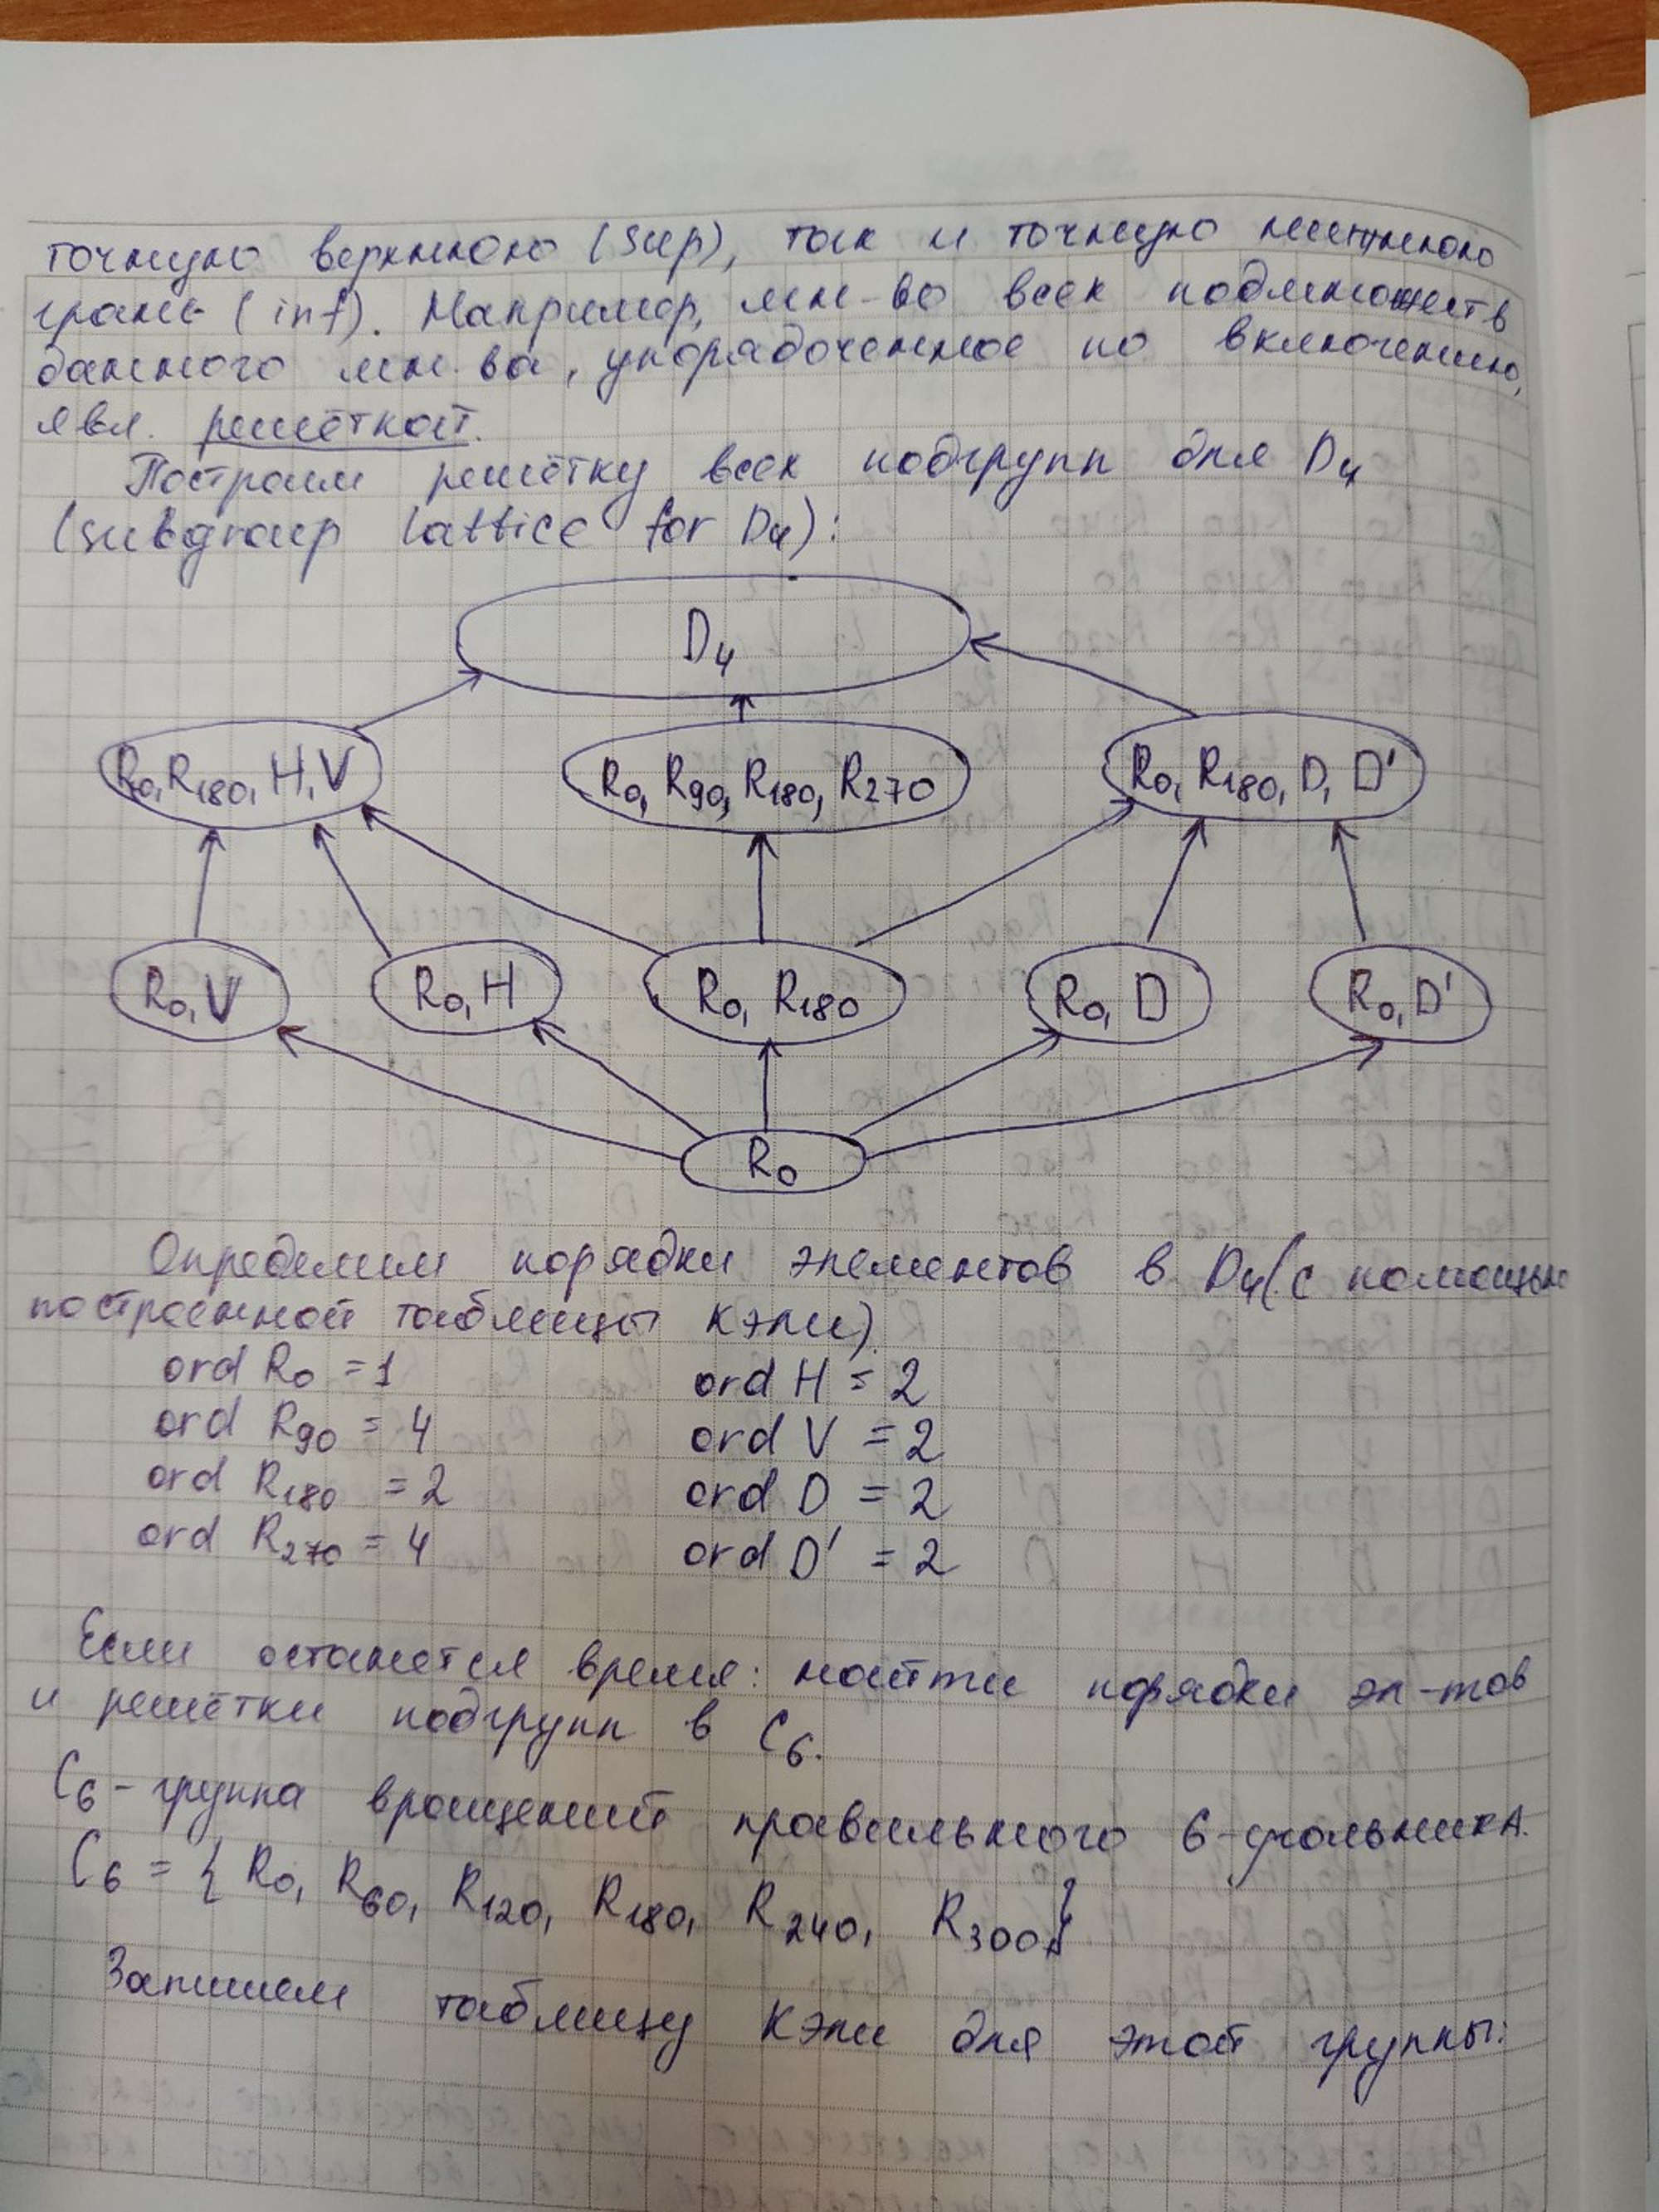 точную верхнюю (sup), так и точную нижнюю
грань (inf). Например, мн-во всех подмножеств
данного мн-ва, упорядоченное по включению,
явл. решёткой.
Построим решётку всех подгрупп для D₄
(subgroup lattice for D₄):
D₄
R₀, R₁₈₀, H, V
R₀, R₉₀, R₁₈₀, R₂₇₀
R₀, R₁₈₀, D, D'
R₀, V
R₀, H
R₀, R₁₈₀
R₀, D
R₀, D'
R₀
Определим порядки элементов в D₄ (с помощью
построенной таблицы Кэли)
ord R₀ = 1
ord H = 2
ord R₉₀ = 4
ord V = 2
ord R₁₈₀ = 2
ord D = 2
ord R₂₇₀ = 4
ord D' = 2
Если останется время: найти порядки эл-тов
и решётки подгрупп в C₆.
C₆ - группа вращений правильного 6-угольника.
C₆ = { R₀, R₆₀, R₁₂₀, R₁₈₀, R₂₄₀, R₃₀₀}
Запишем таблицу Кэли для этой группы: